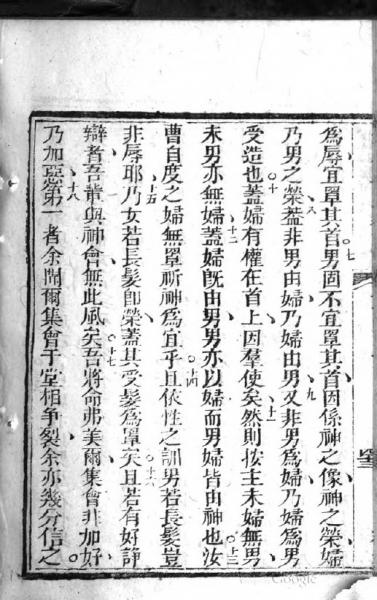 為辱宜罩其首七男固不宜罩其首因係神之像神之榮婦
乃男之榮葢八非男由婦乃婦由男九又非男為婦乃婦為男
受造也十葢婦有權在首上因羣使矣十一然則按主未婦無男
未男亦無婦十二葢婦旣由男男亦以婦而男婦皆由神也十三汝
曹自度之婦無罩祈神為宜乎十四且依性之訓男若長髮豈
非辱耶十五乃女若長髮卽榮葢其受髮為罩矣十六且若有好諍
辯者吾輩與神會無此風矣十七吾將命弗美爾集會非加好
乃加惡十八第一者余聞爾集會于堂相争裂余亦幾分信之
Google